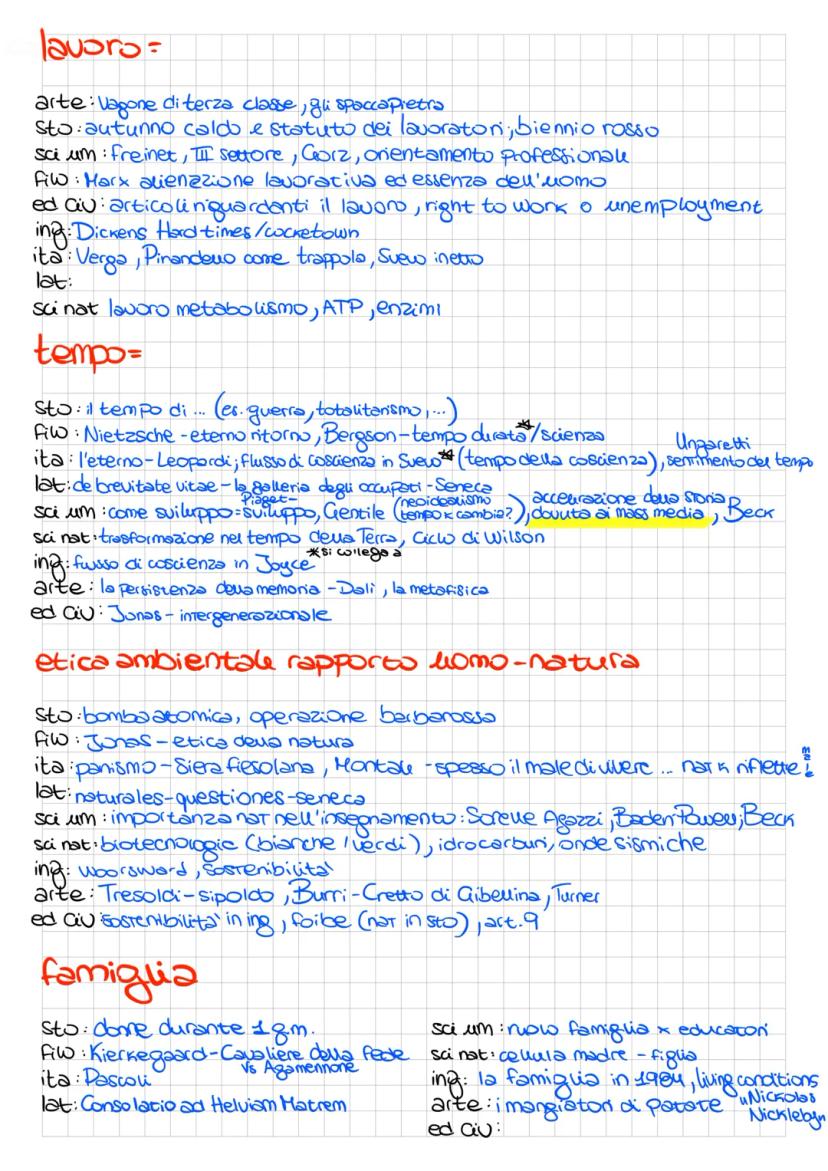 lavoro=
arte: Vagone di terza classe, gli spaccapietra
sto: autunno caldo e statuto dei lavoratori, biennio rosso
sci um: freinet, III settore, Gorz, orientamento professionale
filo: Marx alienazione lavorativa ed essenza dell'uomo
ed civ: articoli riguardanti il lavoro, right to work o unemployment
ing: Dickens Hard times/cocketown
ita: Verga, Pirandello come trappola, Svevo inetto
lat:
sci nat lavoro metabolismo, ATP, enzimi
tempo=
sto: il tempo di ... (es. guerra, totalitarismo, ...)
filo: Nietzsche - eterno ritorno, Bergson - tempo durata*/scienza
ita: l'eterno - Leopardi, flusso di coscienza in Svevo* (tempo della coscienza), Ungaretti sentimento del tempo
lat: de brevitate vitae - la galleria degli occupati - Seneca
sci um: come sviluppo = Piaget - sviluppo, Gentile (neoidealismo tempo x cambia?), accelerazione della storia dovuta ai mass media, Beck
sci nat: trasformazione nel tempo della Terra, ciclo di Wilson
ing: flusso di coscienza in Joyce *si collega a
arte: la persistenza della memoria - Dalì, la metafisica
ed civ: Jonas - intergenerazionale
etica ambientale rapporto uomo-natura
sto: bomba atomica, operazione barbarossa
filo: Jonas - etica della natura
ita: panismo - Siera fiesolana, Montale - spesso il male di vivere ... nat k riflette male
lat: naturales-questiones-seneca
sci um: importanza nat nell'insegnamento: Sorelle Agazzi, Baden Powell, Beck
sci nat: biotecnologie (bianche/verdi), idrocarburi, onde sismiche
ing: Woorsward, sostenibilità
arte: Tresoldi-sipoldo, Burri - Cretto di Gibellina, Turner
ed civ sostenibilità in ing, foibe (nat in sto), art. 9
famiglia
sto: donne durante 1 g.m.
filo: Kierkegaard - Cavaliere della fede vs Agamennone
ita: Pascoli
lat: Consolatio ad Helviam Matrem
sci um: ruolo famiglia x educatori
sci nat: cellula madre - figlia
ing: la famiglia in 1984, living conditions "Nickolas Nickleby"
arte: i mangiatori di patate
ed civ: